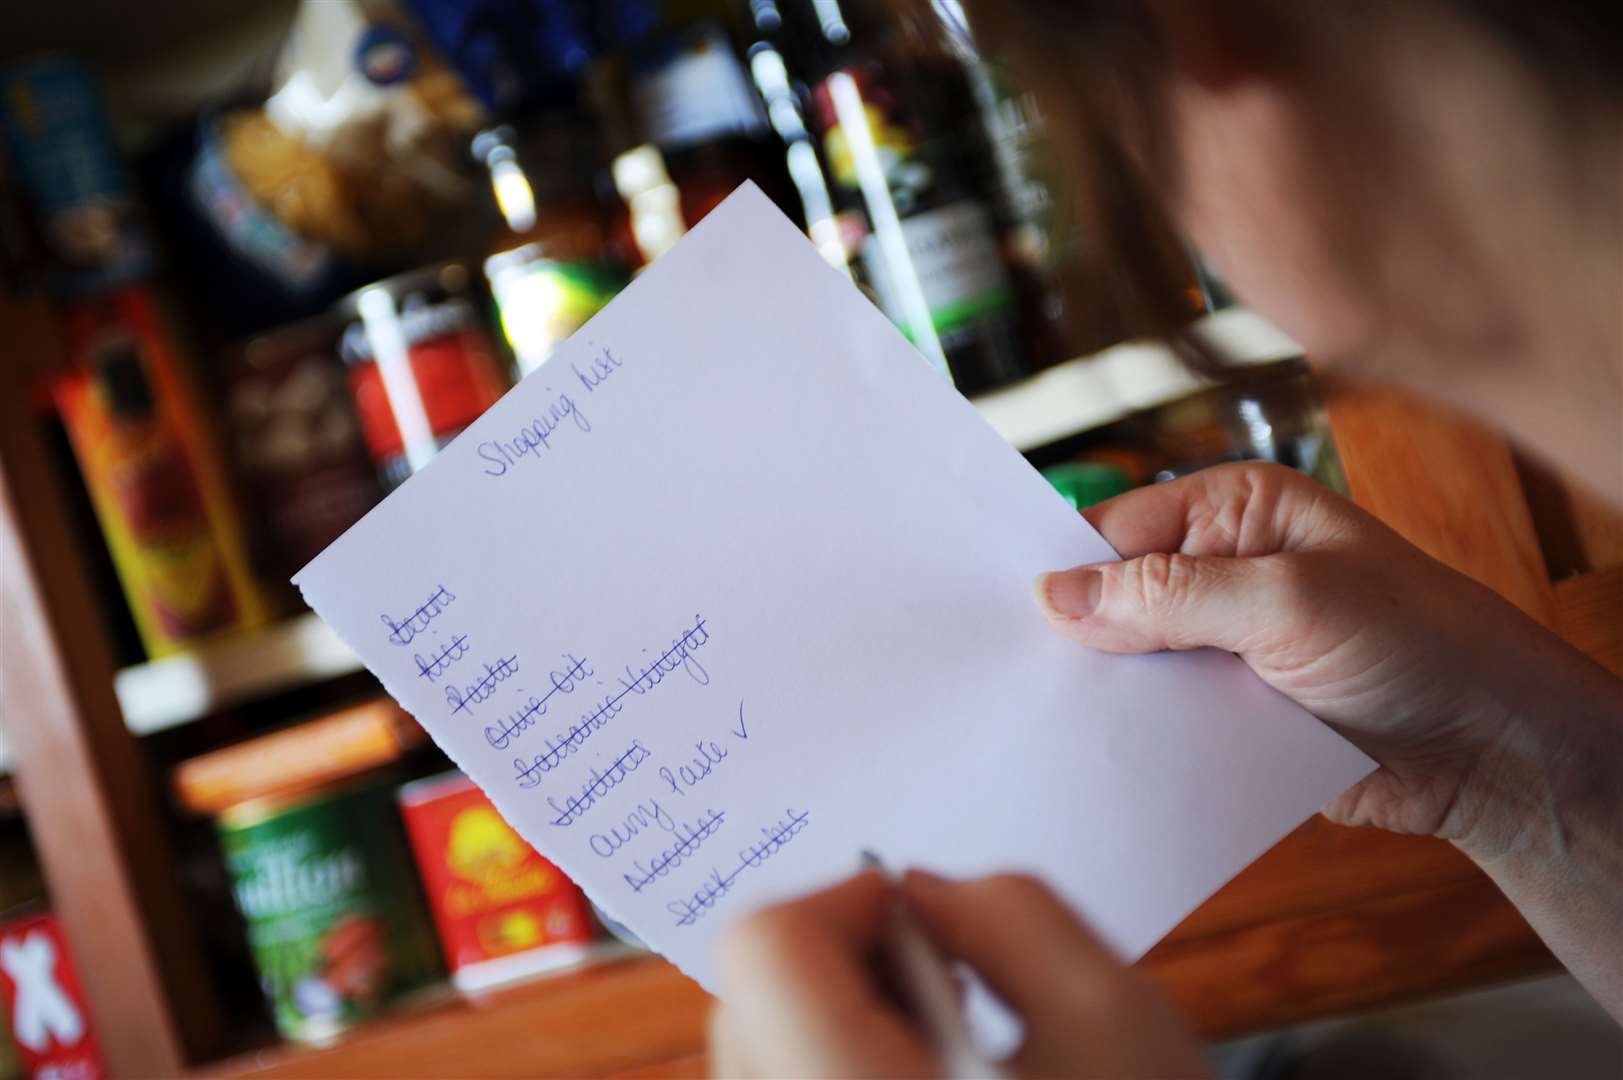 Shopping List
Beans
Rice
Pasta
Olive Oil
Balsamic Vinegar
Sardines
Curry Paste ✓
Noodles
Stock cubes